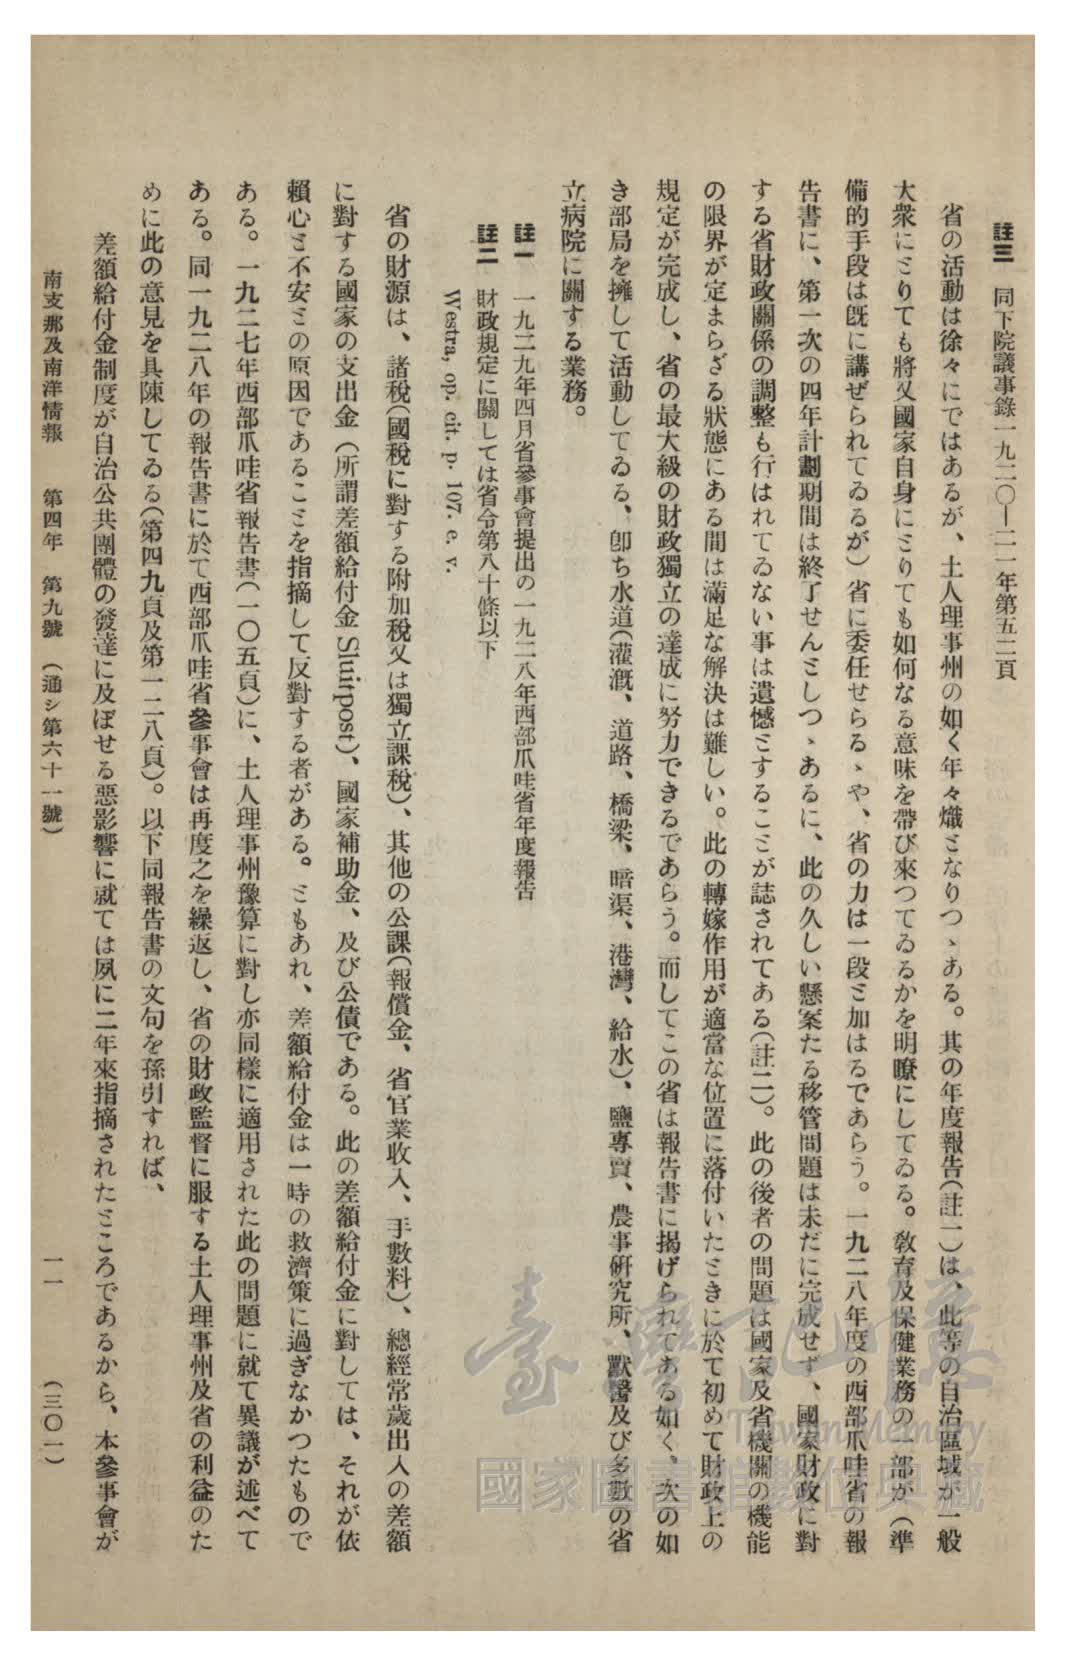 註三　同下院議事錄一九二〇―二一年第五二頁
省の活動は徐々にではあるが、土人理事州の如く年々熾とな​りつゝある。其の年度報告(註一)は、此等の自治區域が一般
大衆にとりても將又國家自身にとりても如何なる意味を帶び來つてゐるかを明瞭にしてゐる。教育及保健業務の一部が(準
備的手段は旣に講ぜられてゐるが)省に委任せらるゝや、省の力は一段と加はるであらう。一九二八年度の西部爪哇省の報
告書に、第一次の四年計劃期間は終了せんとしつゝあるに、此の久しい懸案たる移管問題は未だに完成せず、國家財政に對
する省財政關係の調整も行はれてゐない事は遺憾とすることが誌されてある(註二)。此の後者の問題は國家及省機關の機能
の限界が定まらざる狀態にある間は滿足な解決は難しい。此の轉嫁作用が適當な位置に落付いたときに於て初めて財政上の
規定が完成し、省の最大級の財政獨立の達成に努力できるであらう。而してこの省は報告書に揭げられてある如く、次の如
き部局を擁して活動してゐる、卽ち水道(灌漑、道路、橋梁、暗渠、港灣、給水)、鹽專賣、農事硏究所、獸醫及び多數の省
立病院に關する業務。
註一　一九二九年四月省參事會提出の一九二八年西部爪哇省年度報告
註二　財政規定に關しては省令第八十條以下
Westra, op. cit. p. 107. e. v.
省の財源は、諸稅(國稅に對する附加稅又は獨立課稅)、其他の公課(報償金、省官業收入、手數料)、總經常歲出入の差額
に對する國家の支出金(所謂差額給付金 Sluitpost)、國家補助金、及び公債である。此の差額給付金に對しては、それが依
賴心と不安との原因であることを指摘して反對する者がある。ともあれ、差額給付金は一時の救濟策に過ぎなかつたもので
ある。一九二七年西部爪哇省報告書(一〇五頁)に、土人理事州豫算に對し亦同樣に適用された此の問題に就て異議が述べて
ある。同一九二八年の報告書に於て西部爪哇省參事會は再度之を繰返し、省の財政監督に服する土人理事州及省の利益のた
めに此の意見を具陳してゐる(第四九頁及第一二八頁)。以下同報告書の文句を孫引すれば、
差額給付金制度が自治公共團體の發達に及ぼせる惡影響に就ては夙に二年來指摘されたところであるから、本參事會が
南支那及南洋情報　第四年　第九號　(通シ第六十一號)　一一　(三〇一)
臺灣記憶
Taiwan Memory
國家圖書館數位典藏